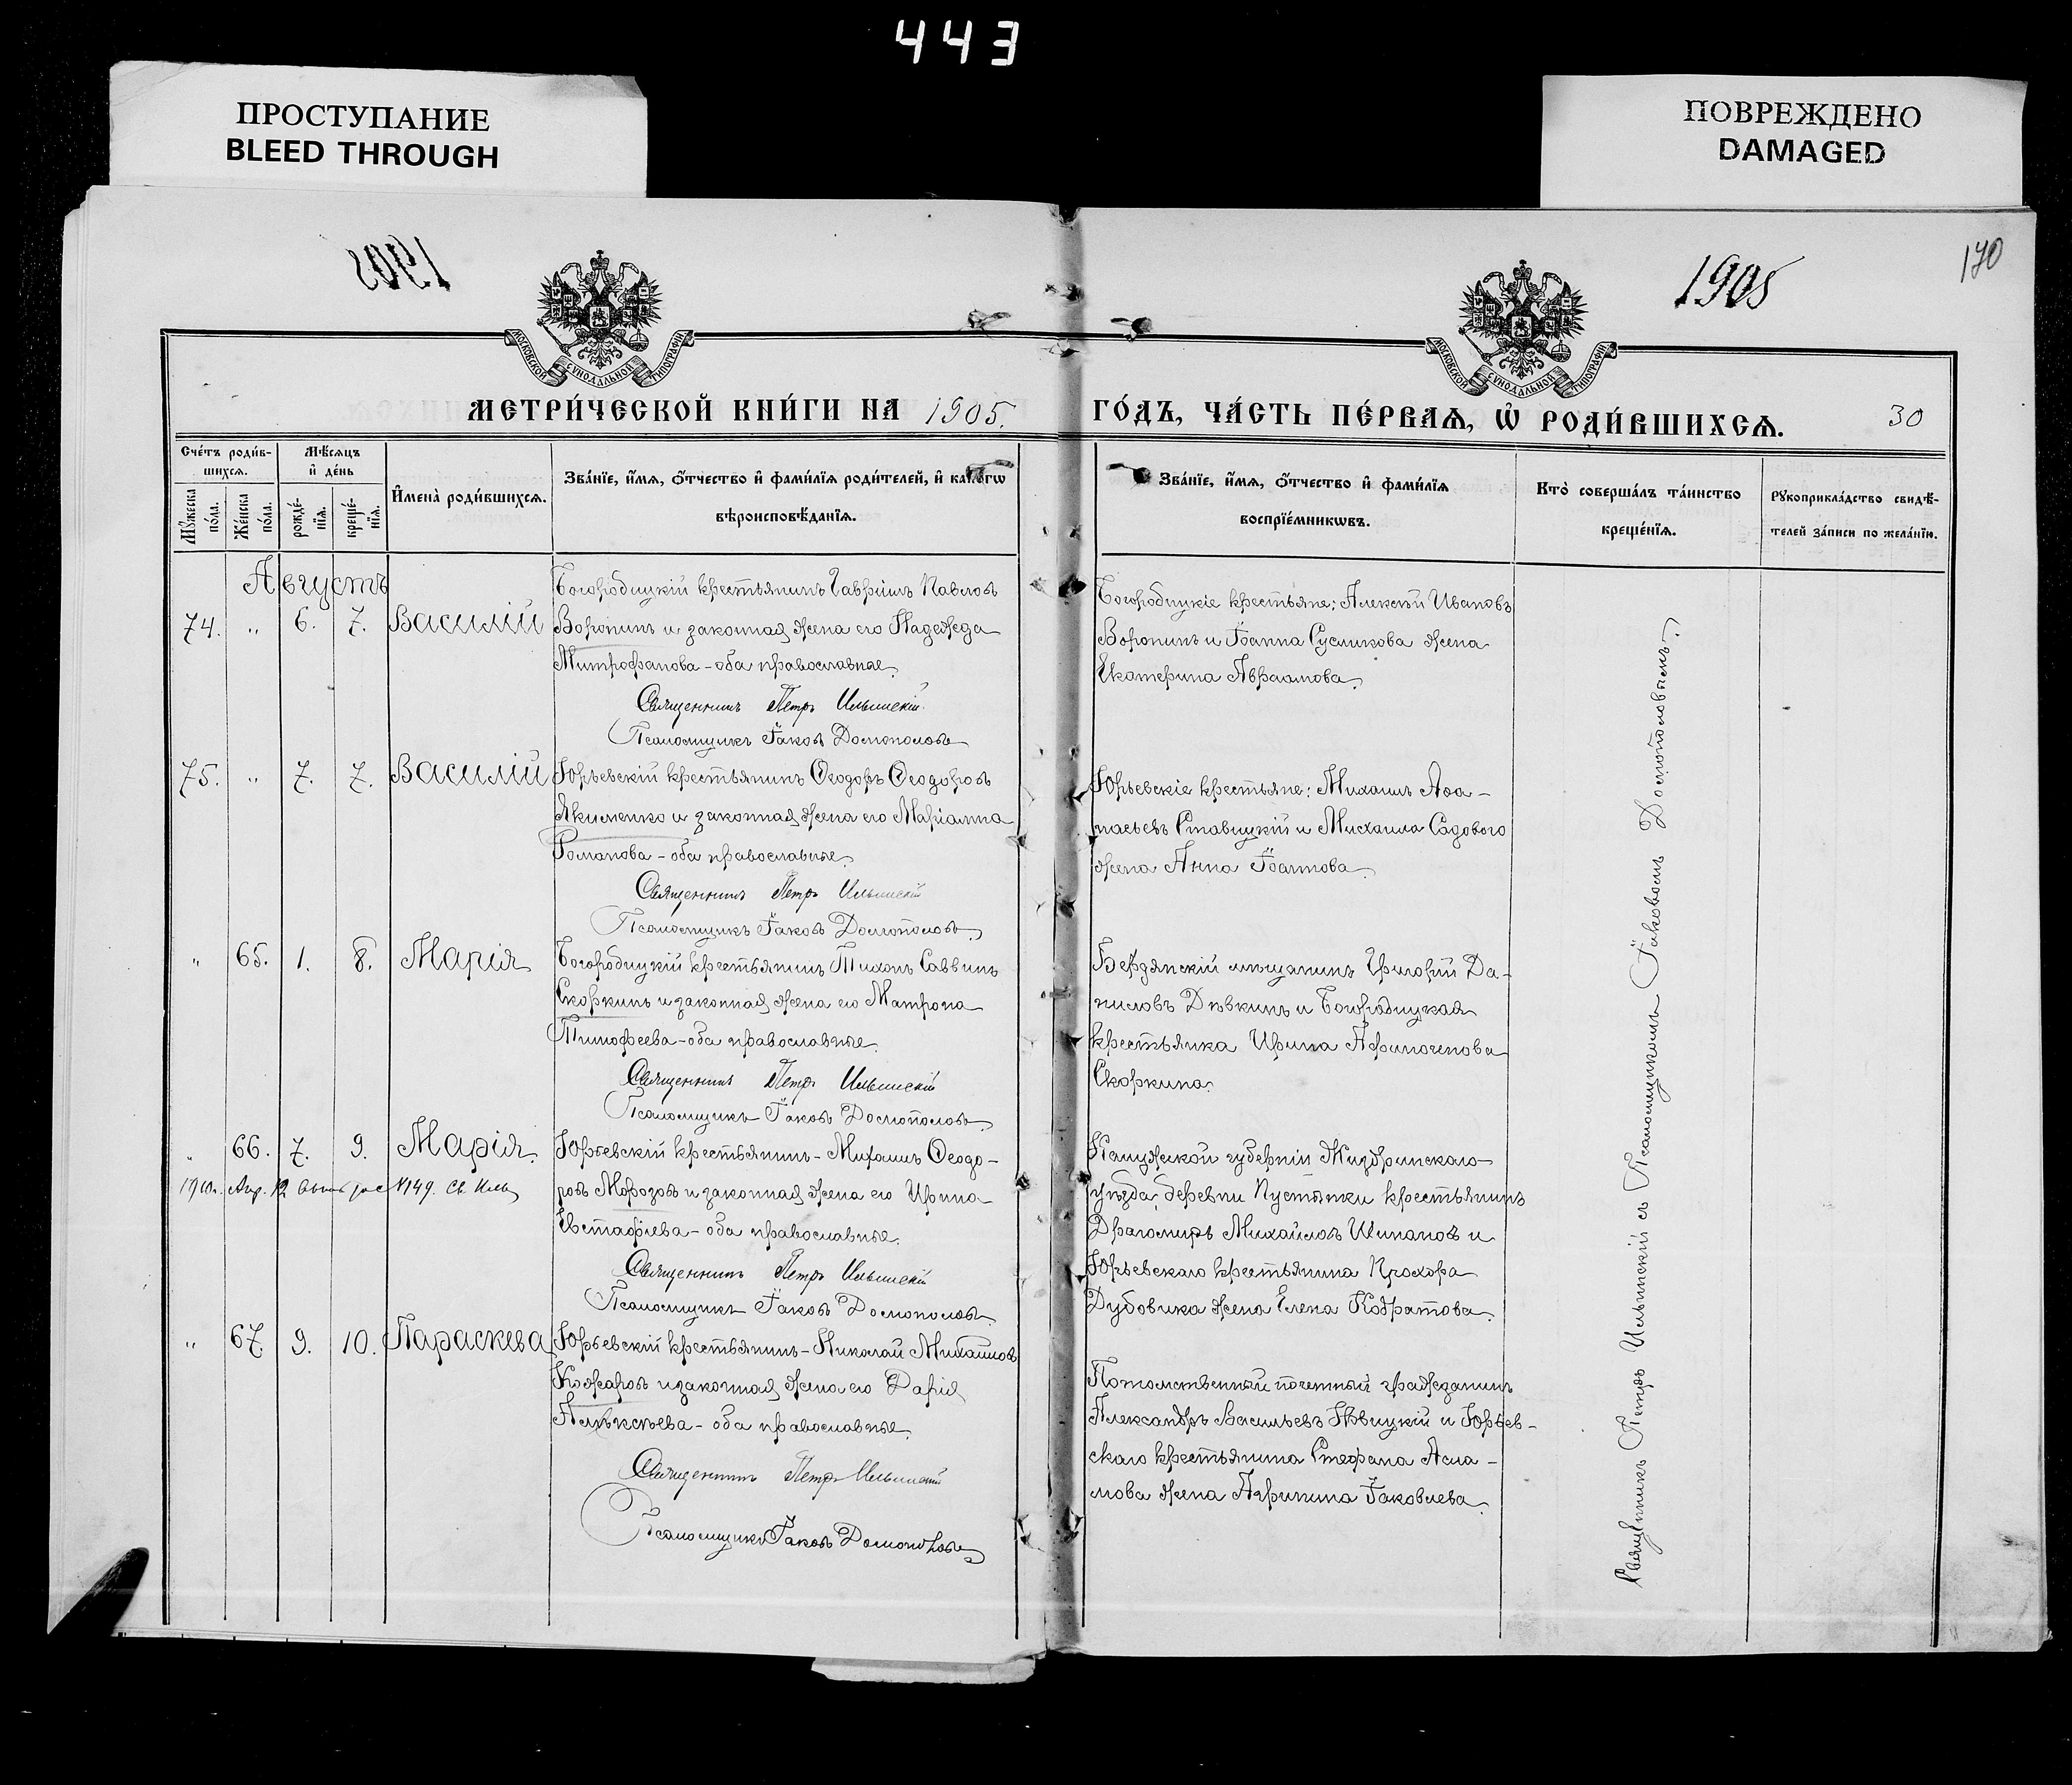 443
ПРОСТУПАНИЕ
BLEED THROUGH
ПОВРЕЖДЕНО
DAMAGED
1905
1905
170
МОСКОВСКОЙ СѴНОДАЛЬНОЙ ТИПОГРАФІИ
МОСКОВСКОЙ СѴНОДАЛЬНОЙ ТИПОГРАФІИ
МЕТРИ́ЧЕСКОЙ КНИ́ГИ НА 1905.
ГО́ДЪ, ЧА́СТЬ ПЕ́РВАѦ, Ѡ РОДИ́ВШИХСѦ.
30
Сче́тъ роди́в-
шихся.
Мꙋ́жеска
по́ла.
Же́нска
по́ла.
Мѣ́сяцъ
и҆ де́нь
рожде́-
нїя.
креще́-
нїя.
И҆мена̀ роди́вшихся.
Зва́нїе, и҆́мя, ѻ҆́тчество и҆ фами́лїя роди́телей, и҆ како́гѡ
вѣроисповѣ́данїя.
Зва́нїе, и҆́мя, ѻ҆́тчество и҆ фами́лїя
воспрїе́мникѡвъ.
Кто̀ соверша́лъ та́инство
креще́нїя.
Рꙋкоприкла́дство свидѣ́-
телей за́писи по жела́нїю.
Августъ
74. " 6. 7. Василій
Богородицкій крестьянинъ Гавріилъ Павловъ
Воронинъ и законная жена его Надежда
Митрофанова - оба православные.
Священникъ Петръ Ильинскій
Псаломщикъ Іаковъ Домополовъ
Богородицкіе крестьяне: Алексѣй Ивановъ
Воронинъ и Іоанна Сусликова жена
Екатерина Авраамова.
75. " 7. 7. Василій
Юрьевскій крестьянинъ Ѳеодоръ Ѳеодоровъ
Якименко и законная жена его Маріанна
Романова - оба православные.
Священникъ Петръ Ильинскій
Псаломщикъ Іаковъ Домополовъ
Юрьевскіе крестьяне: Михаилъ Аѳа-
насьевъ Ставицкій и Михаила Садового
жена Анна Іоаннова.
" 65. 1. 8. Марія
Богородицкій крестьянинъ Тихонъ Саввинъ
Скоркинъ и законная жена его Матрона
Тимофеева - оба православные.
Священникъ Петръ Ильинскій
Псаломщикъ Іаковъ Домополовъ
Бердянскій мѣщанинъ Григорій Да-
ниловъ Дѣвкинъ и Богородицкая
крестьянка Ирина Афиногенова
Скоркина.
" 66. 7. 9. Марія
1910г. Апр. 12 №149.
Юрьевскій крестьянинъ - Михаилъ Ѳеодо-
ровъ Морозовъ и законная жена его Ирина
Евстафіева - оба православные.
Священникъ Петръ Ильинскій
Псаломщикъ Іаковъ Домополовъ
Калужской губерніи Жиздринскаго
уѣзда, деревни Пустынки крестьянинъ
Драгомиръ Михайловъ Шипановъ и
Юрьевскаго крестьянина Прохора
Дубовика жена Елена Кодратова.
" 67. 9. 10. Параскева
Юрьевскій крестьянинъ - Николай Михайловъ
Кожаровъ и законная жена его Дарія
Алексѣева - оба православные.
Священникъ Петръ Ильинскій
Псаломщикъ Іаковъ Домополовъ
Потомственный почетный гражданинъ
Александръ Васильевъ Левицкій и Юрьев-
скаго крестьянина Стефана Асла-
мова жена Агрипина Іаковлева.
Священникъ Петръ Ильинскій съ Псаломщикомъ Іаковомъ Домополовымъ.